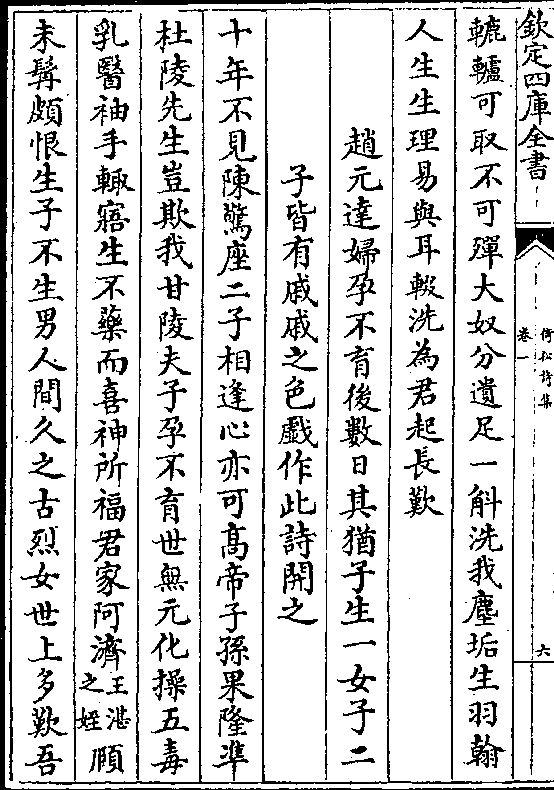 欽定四庫全書
倚松詩集
卷一
六
轆轤可取不可殫大奴分遺足一斛洗我塵垢生羽翰
人生生理易與耳輟洗為君起長歎
趙元達婦孕不育後數日其猶子生一女子二
子皆有戚戚之色戲作此詩開之
十年不見陳驚座二子相逢心亦可高帝子孫果隆準
杜陵先生豈欺我甘陵夫子孕不育世無元化操五毒
乳醫袖手輙寤生不藥而喜神所福君家阿濟王湛之姪頎
未髯頗恨生子不生男人間久之古烈女世上多歎吾